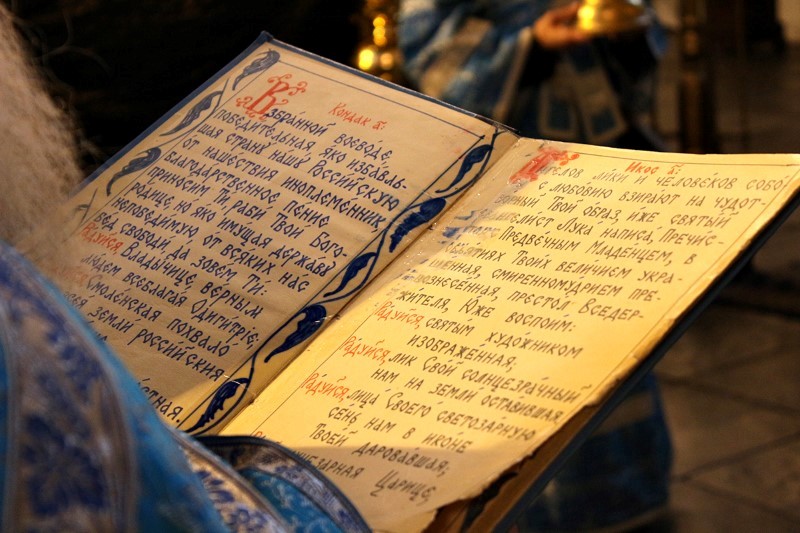 Кондак а҃:
Взбранной воеводе,
победительная яко избавль-
шая страну нашу Российскую
от нашествия иноплеменник,
благодарственное пение
приносим Ти, раби Твои Бого-
родице, но яко имущая державу
непобедимую от всяких нас
бед свободи, да зовем Ти:
Радуйся, Владычице, верным
людем всеблагая Одигитрие;
Смоленская похвало
земли российския
Икос а҃:
Ангелов лики и человеков собо
с любовию взирают на чудот-
ворный Твой образ, иже святый
Лука написа, Пречис-
Предвечным Младенцем, в
Твоих величием укра-
смиренномудрием пре-
вознесенная, престол Вседер-
жителя, Юже воспоим:
Радуйся, святым художником
изображенная;
Радуйся, лик Свой солнцезрачный
нам на земли оставившая
Радуйся, лица Своего светозарную
сень нам в иконе
Твоей даровавшая;
Царице,